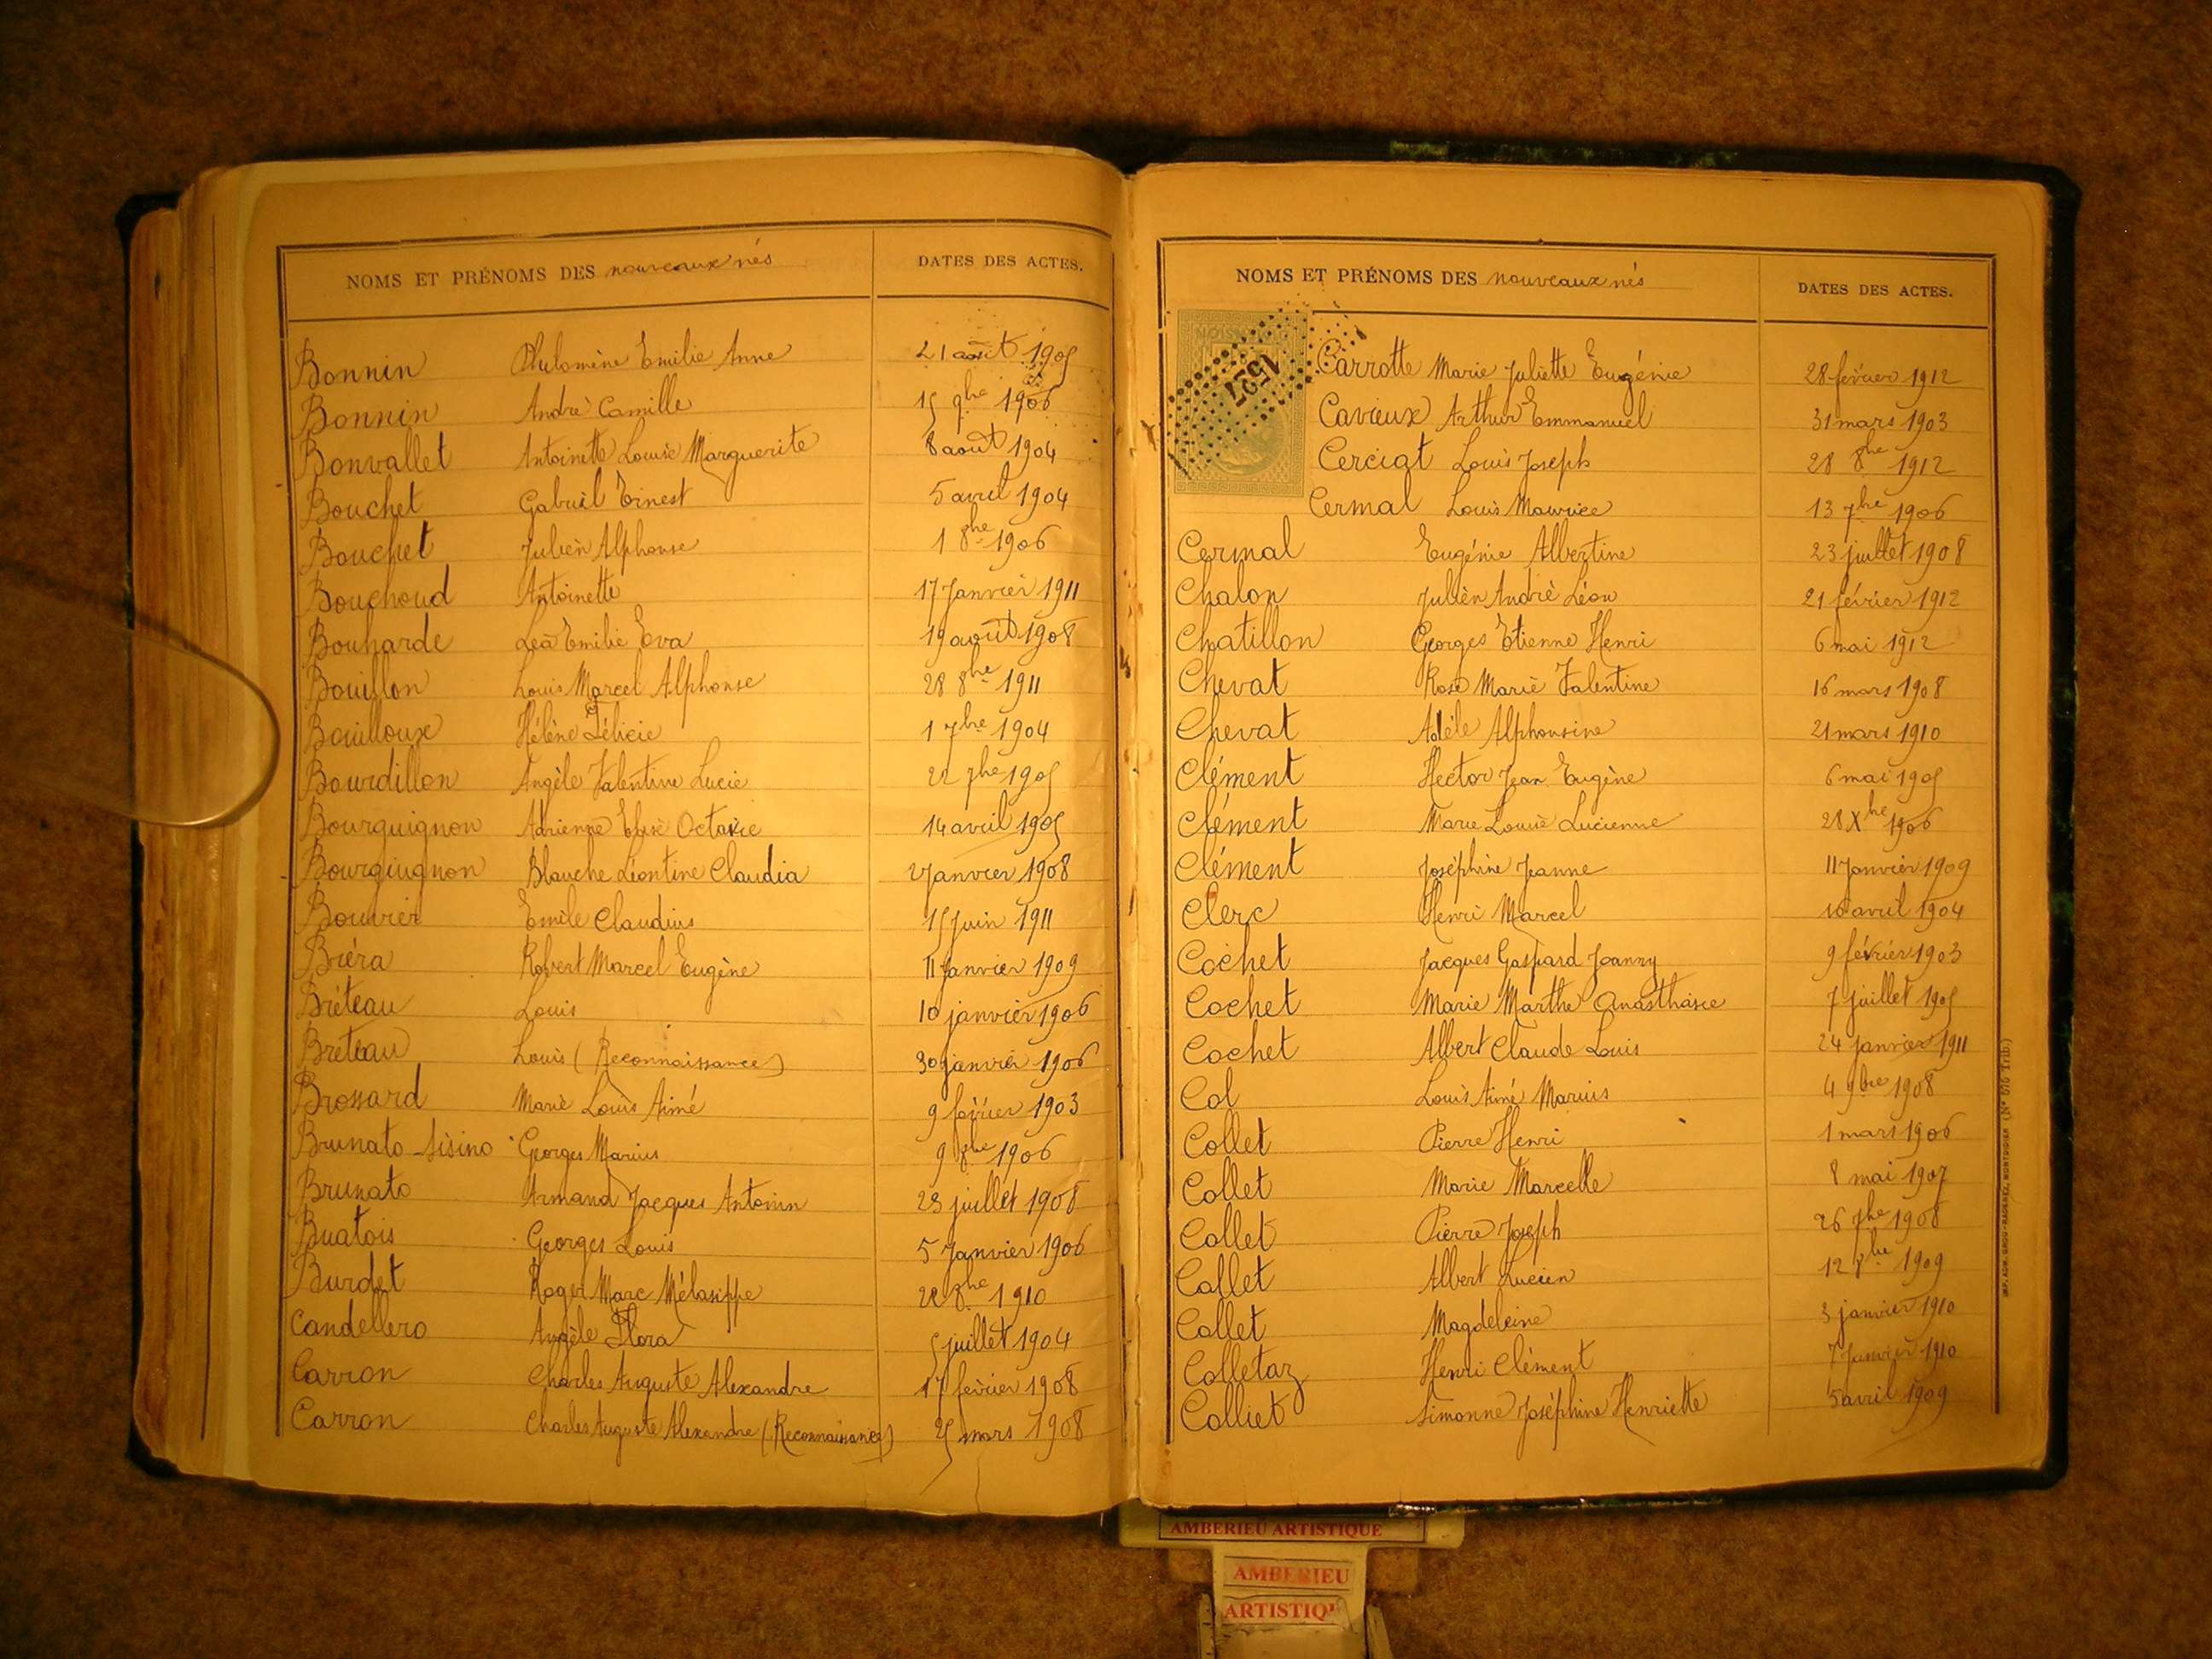 NOMS ET PRÉNOMS DES nouveaux nés DATES DES ACTES.
Bonnin Philomène Emilie Anne 21 août 1905
Bonnin André Camille 15 9bre 1906
Bonvallet Antoinette Louise Marguerite 8 août 1904
Bouchet Gabriel Ernest 5 avril 1904
Bouchet Julien Alphonse 1 8bre 1906
Bouchoud Antoinette 17 Janvier 1911
Bouharde Léa Emilie Eva 19 août 1908
Bouillon Louis Marcel Alphonse 28 8bre 1911
Bouilloux Hélène Félicie 1 7bre 1904
Bourdillon Angèle Valentine Lucie 22 7bre 1905
Bourguignon Adrienne Elise Octavie 14 avril 1905
Bourguignon Blanche Léontine Claudia 2 Janvier 1908
Bouvier Emile Claudius 15 Juin 1911
Briéra Robert Marcel Eugène 11 Janvier 1909
Bréteau Louis 10 janvier 1906
Bréteau Louis (Reconnaissance) 30 janvier 1906
Brossard Marie Louis Aimé 9 février 1903
Brunato Sisino Georges Marius 9 8bre 1906
Brunato Armand Jacques Antonin 23 juillet 1908
Buatois Georges Louis 5 Janvier 1906
Burdet Roger Marc Mélasippe 8bre 1910
Candellero Angèle Flora 5 juillet 1904
Carron Charles Auguste Alexandre 17 février 1908
Carron Charles Auguste Alexandre (Reconnaissance) 25 mars 1908
NOMS ET PRÉNOMS DES nouveaux nés DATES DES ACTES.
1527
Carrotte Marie Juliette Eugénie 28 février 1912
Cavieux Arthur Emmanuel 31 mars 1903
Cerciat Louis Joseph 28 8bre 1912
Cermal Louis Maurice 13 7bre 1906
Cermal Eugénie Albertine 23 juillet 1908
Chalon Julien André Léon 21 février 1912
Chatillon Georges Etienne Henri 6 mai 1912
Chevat Rose Marie Valentine 16 mars 1908
Chevat Adèle Alphonsine 21 mars 1910
Clément Hector Jean Eugène 6 mai 1905
Clément Marie Louise Lucienne 28 Xbre 1906
Clément Joséphine Jeanne 11 Janvier 1909
Clerc Henri Marcel 10 avril 1904
Cochet Jacques Gaspard Joanny 9 février 1903
Cochet Marie Marthe Anasthasie 7 juillet 1905
Cochet Albert Claude Louis 24 janvier 1911
Col Louis Aimé Marius 4 9bre 1908
Collet Pierre Henri 1 mars 1906
Collet Marie Marcelle 8 mai 1907
Collet Pierre Joseph 26 7bre 1908
Collet Albert Lucien 12 8bre 1909
Collet Magdeleine 3 janvier 1910
Colletaz Henri Clément 7 Janvier 1910
Colliet Simonne Joséphine Henriette 5 avril 1909
AMBERIEU ARTISTIQUE
AMBERIEU